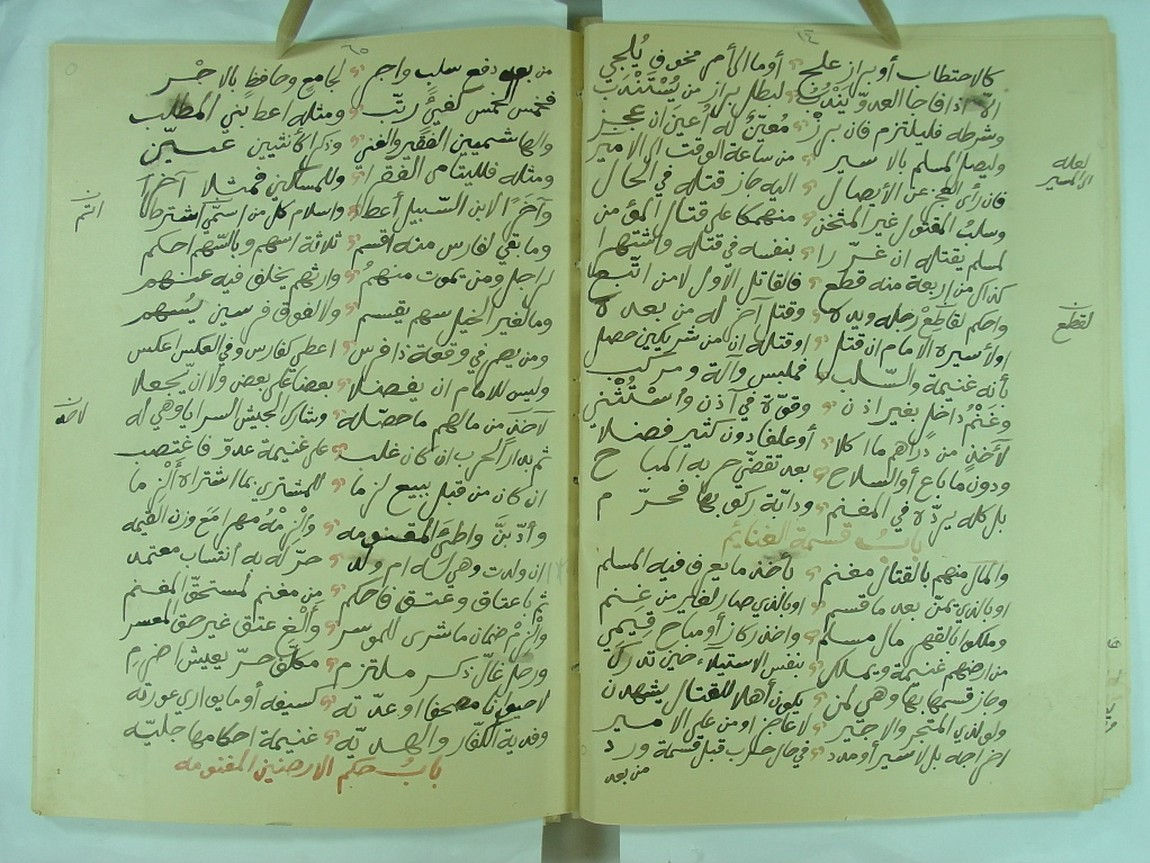 كالاحتطاب أو براز علج أو ما الى أمر مخوف يُلجي
الا اذا فاجا العدوّ يَنْدُب ليطل براز من يُسْتَنْدَب
وشرطه فليلتزم فان برز مُعِيْنٌ له أُعين ان عجز
وليصل المسلم بالاسير من ساعة الوقت الى الامير
فان رأى العجز عن الأيصال اليه جاز قتله في الحال
وسلبُ المقتول غير المثخن منهمكا على قتال المؤمن
لمسلم يقتله ان غرّرا بنفسه في قتله واشتهرا
كذاك من اربعة منه قطع فالقاتل الاول لا من اتّبع
واحكم لقاطع رجله ويده وقتل آخر له من بعده
اولأسيره الامام ان قتل او قتله ان من شريكين حصل
بأنه غنيمة والسّلب فملبس وآلة ومركب
وغنم داخل بغير اذن وقوّة في آذن واسْتُثْني
لآخذٍ من دراهم ما اكلا أو علفا دون كثير فضلا
ودون ما باع أو السلاح بعد تقضّي حربه المباح
بل كله يردّه في المغنم ودابّة ركوبها فحرّم
بابُ قسمة الغنايم
والمال منهم بالقتال مغنم يأخذ ما يعرفه فيه المسلم
او بالذي ثمّن بعد ما قسم او بالذي صار لغاير من غنم
وملكوا بالقهر مال مسلم واخذ ركاز أو مباح قيمي
من ارضهم غنيمة ويملك بنفس الاستيلاء حين تدرك
وجاز قسمها بها وهي لمن يكون أهلا للقتال يشهدن
ولو لذي المتجر والاجير لا عاجز او من على الامير
اخراجه بل لاسير أو مدد في حال حرب قبل قسمة ورد
من بعد
لعله
الاسير
لقطع
من بعد دفع سلب واجر لجامع وحافظ بالاحر
فخمس الخمس كفيئ رتّب ومثله اعط بني المطلب
والهاشميين الفقير والغني وذكرا كأنثيين عيّن
ومثله فلليتامى الفقرا وللمساكين فمثلا آخرا
وآخرًا لابن السّبيل أعط واسلام كل من اسمّي اشترطا
وما بقي لفارس منه اقسم ثلاثة اسهم وبالسّهم احكم
لراجل ومن تموت منهمُ وارثهم يخلف فيه عنهم
وما لغير الخيل سهم يقسم ولا لفوق فرسين يُسهم
ومن يصر في وقعة ذا فرس اعطي كفارس وفي العكس اعكس
وليس للامام ان يفضلا بعضا على بعض ولا ان يجعلا
لآخذ من مالهم ما حصّله وشارك الجيش السرايا وهي له
ثم بدار الحرب ان كان غلب على غنيمة عدوّ فاغتصب
ان كان من قبل ببيع لزما للمشتري بما اشتراه ألزما
وأدّبنّ واطئ المقسومه وألزمْهُ مهرا مَعَ وزن القيمه
ان ولدت وهي له ام ولد حرّ له به أنتساب معتمد
ثم باعتاق وعتق فاحكم من مغنم لمستحقّ المغنم
وألزمْ ضمان ما شرى للموسر وألغ عتق غير حق المعسر
ورحل غالّ ذكر ملتزم مكلّف حرّ يعيش اضرم
لا حيوانا مصحفا او عدّته كسيفه أو ما يواري عورته
وفدية الكفار والهديّه غنيمة احكامها جليّه
بابُ حكم الارضين المغنومه
لآخذ